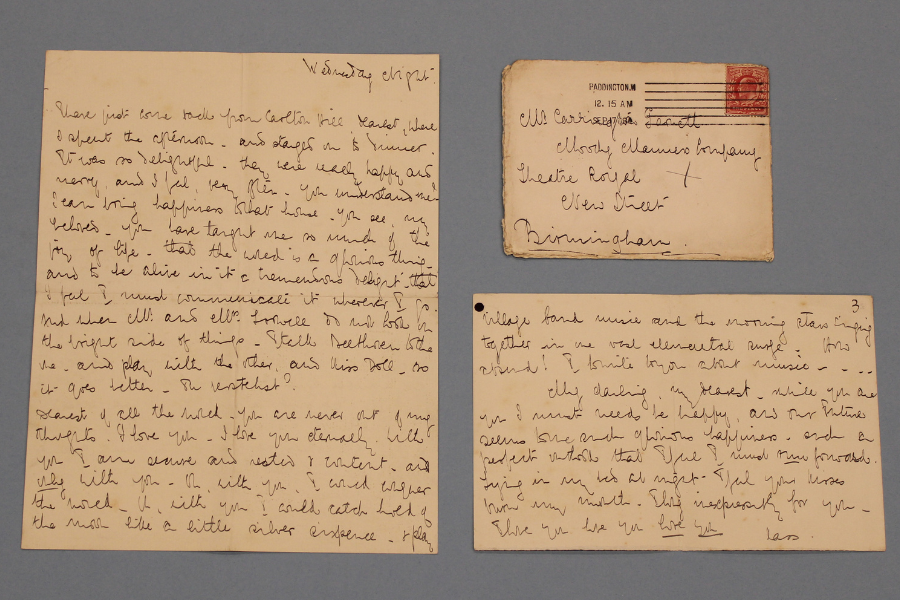 Wednesday Night.
I have just come back from Carlton Hill, dearest, where
I spent the afternoon - and stayed on to dinner.
It was so delightful - they were really happy and
merry, and I feel, very often - you understand me?
I can bring happiness to that house - you see, my
beloved - you have taught me so much of the
joy of life - that the world is a glorious thing -
and to be alive in it a tremendous delight - that
I feel I must communicate it wherever I go.
And when Mr. and Mrs. Trowell do not look on
the bright side of things - I talk Beethoven to the
one - and play with the other, and kiss Doll - so
it goes better - Du verstehst?
Dearest of all the world - you are never out of my
thoughts. I love you - I love you eternally. With
you I am secure and rested & content - and
only with you - Oh, with you, I could conquer
the world - Oh, with you I could catch hold of
the moon like a little silver sixpence - & play
PADDINGTON.W
12.15 AM
SEP 17
Mr. Carrington Garnett
Moody Manners Company
Theatre Royal
New Street
Birmingham.
3
village band music and the morning stars singing
together in one vast elemental surge - How
absurd! I to write to you about music - - . . .
My darling, my dearest, while you are
you I must needs be happy, and our Future
seems to me such glorious happiness - such a
perfect outlook that I feel I must run forward.
Lying in my bed at night - I feel your kisses
burn my mouth - I long inexpressibly for you -
I love you love you love you
Kass.